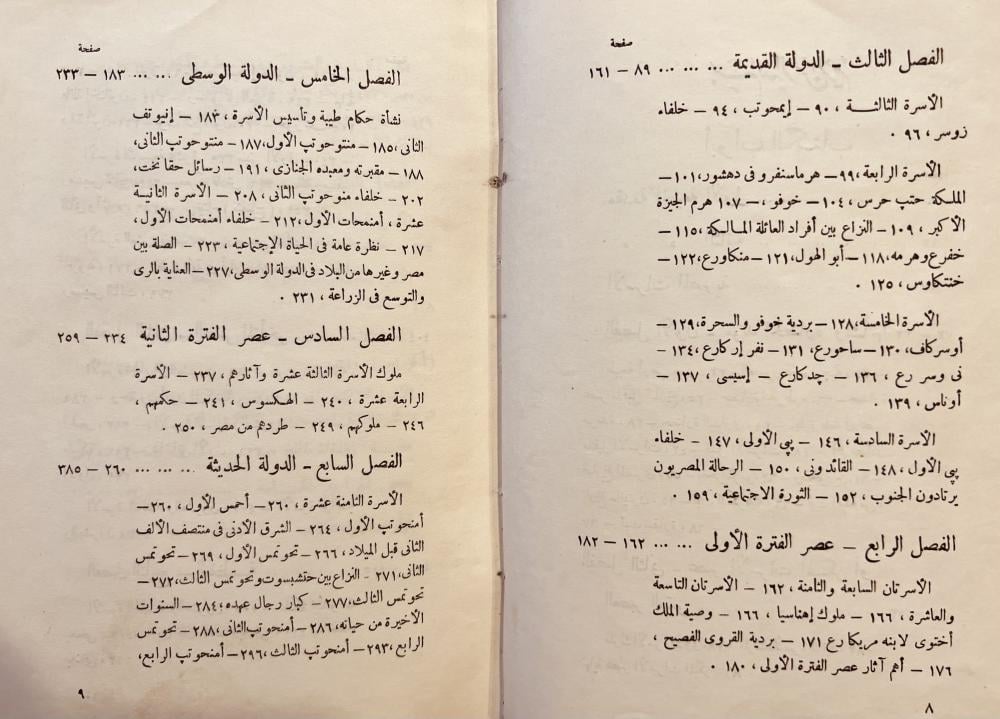 صفحة
الفصل الثالث ـ الدولة القديمة ... ... ... ٨٩ – ١٦١
الأسرة الثالثــة ، ٩٠ – إيمحوتب ، ٩٤ – خلفاء
زوسر ، ٩٦ .
الأسرة الرابعة ، ٩٩ – هرما سنفرو فى دهشور ، ١٠١ –
الملكة حتپ حرس ، ١٠٤ – خوفو ، – ١٠٧ هرم الجيزة
الأكبر ، ١٠٩ – النزاع بين أفراد العائلة المـالـكة ، ١١٥ –
خفرع وهرمه ، ١١٨ – أبو الهول ، ١٢١ – منكاورع ، ١٢٢ –
خنتكاوس ، ١٢٥ .
الأسرة الخامسة ، ١٢٨ – بردية خوفو والسحرة ، ١٢٩ –
أوسركاف ، ١٣٠ – ساحورع ، ١٣١ – نفر إر كارع ، ١٣٤ –
نى وسر رع ، ١٣٦ – چدكارع – إسيسى ، ١٣٧ –
أوناس ، ١٣٩ .
الأسرة السادسة ، ١٤٦ – پپى الأولى ، ١٤٧ – خلفاء
پپى الأول ، ١٤٨ – القائد ونى ، ١٥٠ – الرحالة المصريون
يرتادون الجنوب ، ١٥٢ – الثورة الاجتماعية ، ١٥٩ .
الفصل الرابع – عصر الفترة الأولى ... ... ١٦٢ – ١٨٢
الأسرتان السابعة والثامنة ، ١٦٢ – الأسرتان التاسعة
والعاشرة ، ١٦٦ – ملوك إهناسيا ، ١٦٦ – وصية الملك
أختوى لابنه مريكا رع ١٧١ – بردية القروى الفصيح ،
١٧٦ – أهم آثار عصر الفترة الأولى ، ١٨٠ .
٨
صفحة
الفصل الخامس ـ الدولة الوسطى ... ... ١٨٣ – ٢٣٣
نشأة حكام طيبة وتأسيس الأسرة ، ١٨٣ – إنيوتف
الثانى ، ١٨٥ – منتو حوتپ الأول ، ١٨٧ – منتو حوتپ الثانى ،
١٨٨ – مقبرته ومعبده الجنازى ، ١٩١ – رسائل حقا نخت ،
٢٠٢ – خلفاء منوحوتپ الثانى ، ٢٠٨ – الأسرة الثانيـة
عشرة ، أمنمحات الأول ، ٢١٢ – خلفاء أمنمحات الأول ،
٢١٧ – نظرة عامة فى الحياة الإجتماعية ، ٢٢٣ – الصلة بين
مصر وغيرها من البلاد فى الدولة الوسطى ، ٢٢٧ – العناية بالرى
والتوسع فى الزراعة ، ٢٣١ .
الفصل السادس ـ عصر الفترة الثانية ٢٣٤ – ٢٥٩
ملوك الأسرة الثالثة عشرة وآثارهم ، ٢٣٧ – الأسرة
الرابعة عشرة ، ٢٤٠ – الهكسوس ، ٢٤١ – حكمهم ،
٢٤٦ – ملوكهم ، ٢٤٩ – طردهم من مصر ، ٢٥٠ .
الفصل السابع ـ الدولة الحديثة ... ... ... ٢٦٠ – ٣٨٥
الأسرة الثامنة عشرة ، ٢٦٠ – أحمس الأول ، ٢٦٠ –
أمنحوتپ الأول ، ٢٦٤ – الشرق الأدنى فى منتصف الألف
الثانى قبل الميلاد ، ٢٦٦ – تحوتمس الأول ، ٢٦٩ – تحوتمس
الثانى ، ٢٧١ – النزاع بين حتشبسوت وتحوتمس الثالث ، ٢٧٢ –
تحوتمس الثالث ، ٢٧٧ – كبار رجال عهده ، ٢٨٤ – السنوات
الأخيرة من حياته ، ٢٨٦ – أمنحوتپ الثانى ، ٢٨٨ – تحوتمس
الرابع ، ٢٩٣ – أمنحوتپ الثالث ، ٢٩٦ – أمنحوتپ الرابع ،
٩